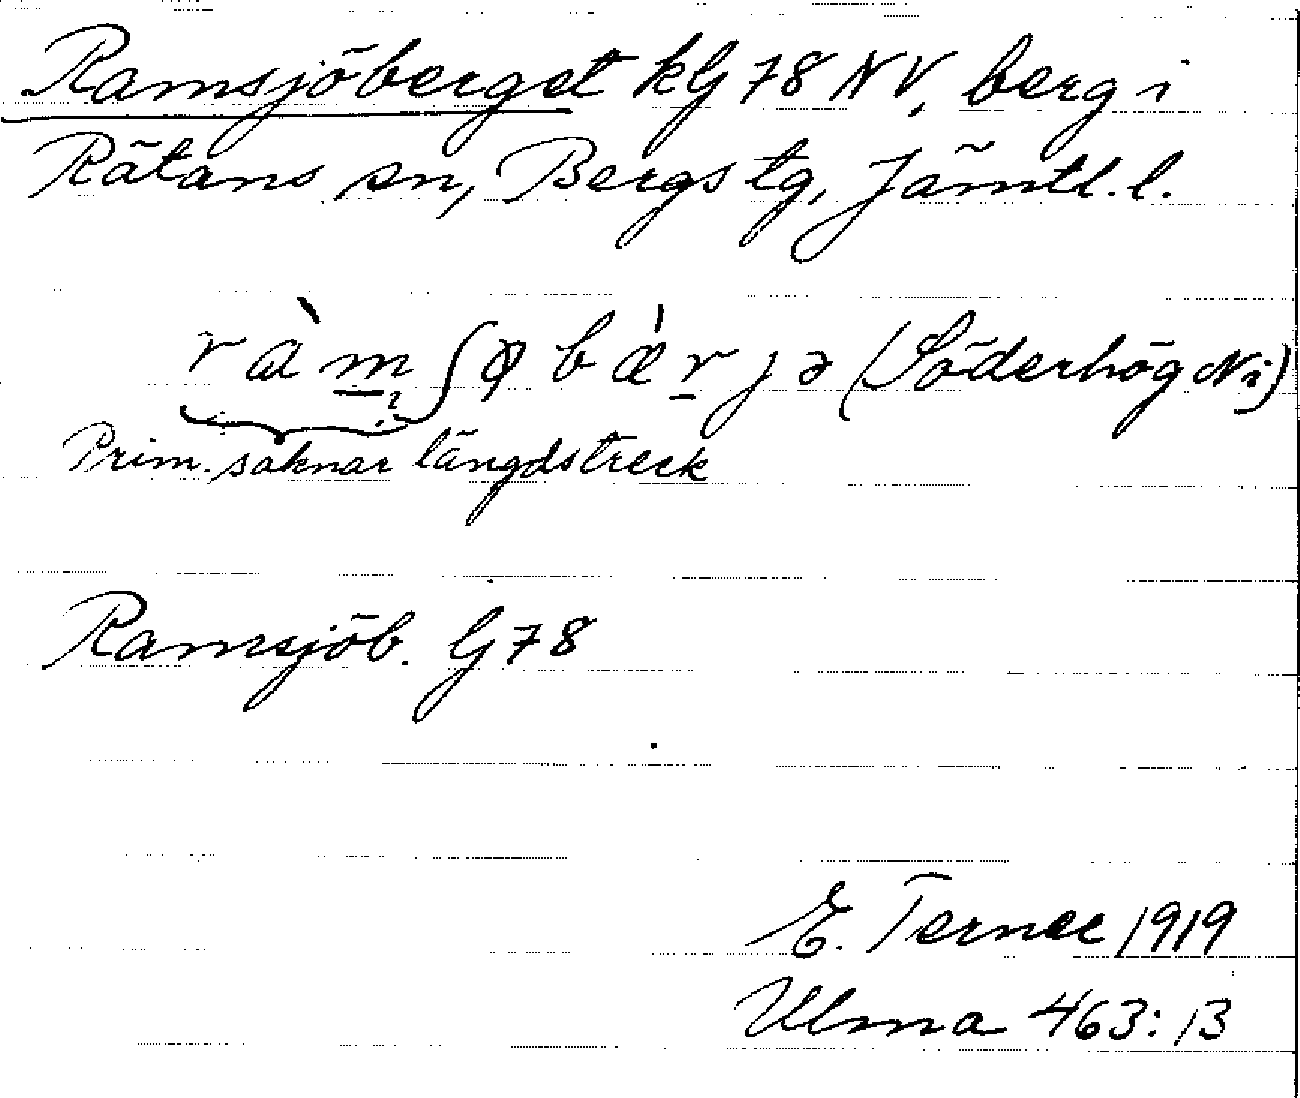 Ramsjöberget kG 78 NV, berg i
Rätans sn, Bergs tg, Jämtl. l.
ràmʃφbæ̀rjə (Söderhög Ni)
Prim. saknar längdstreck
Ramsjöb. G 78
E. Ternee 1919
Ulma 463:13